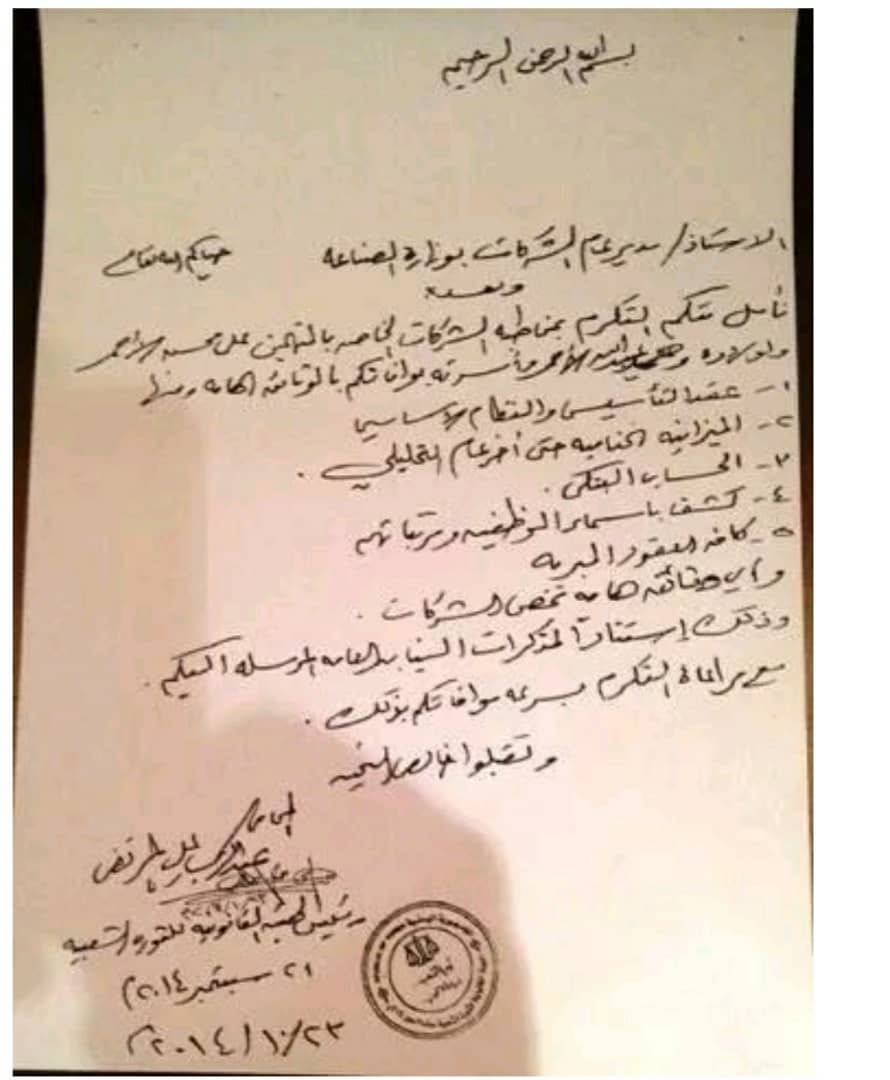 بسم الله الرحمن الرحيم
الاستاذ / مدير عام الشركات بوزارة الصناعه حياكم الله تعالى
وبعد
نأمل منكم التكرم بمخاطبه الشركات الخاصه بالمتهمين علي محسن الاحمر
واولاده و عبدالله الأحمر وأسرته بموافاتكم بالوثائق الهامه ومنها
١- عقد التأسيس والنظام الاساسي
٢- الميزانيه الختاميه حتى أخر عام التحليلي .
٣- الحساب البنكي .
٤- كشف باسماء الوظفيه ومرتباتهم
٥- كافه العقود المبرمه
وأي وثائق هامه تخص الشركات .
وذلك إستناداً لمذكرات النيابه العامه المرسله اليكم .
مع مراعاة التكرم بسرعه موافاتكم بذلك .
وتقبلوا خالص التحيه
المحامي
المرتضى
رئيس الهيئه القانونيه للثوره الشعبيه
٢١ سبتمبر ٢٠١٤م
٢٣/١٠/٢٠١٤م